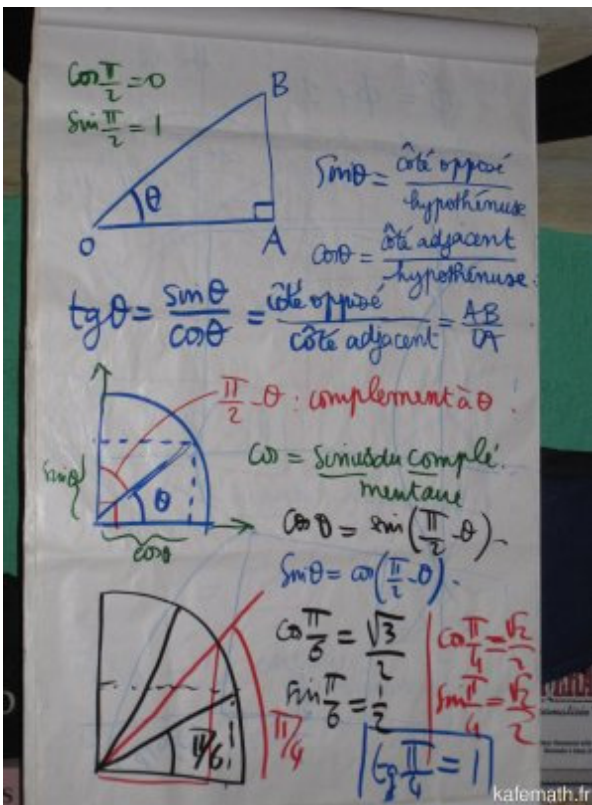 cos π/2 = 0
sin π/2 = 1
B
θ
O
A
sin θ = côté opposé / hypothénuse
cos θ = côté adjacent / hypothénuse.
tg θ = sin θ / cos θ = côté opposé / côté adjacent = AB / OA
π/2 - θ : complement à θ.
sin θ
θ
cos θ
cos = sinus du complé.
mentaire
cos θ = sin(π/2 - θ).
sin θ = cos(π/2 - θ).
cos π/6 = √3/2
sin π/6 = 1/2
cos π/4 = √2/2
sin π/4 = √2/2
π/6
π/4
tg π/4 = 1
kafemath.fr